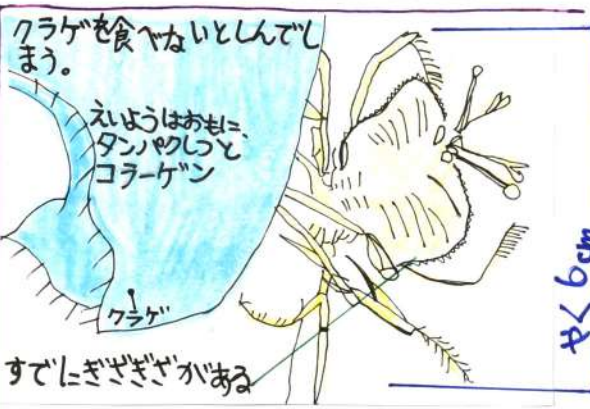 クラゲを食べないとしんでし
まう。
えいようはおもに、
タンパクしつと
コラーゲン
クラゲ
すでにぎざぎざがある
やく6cm